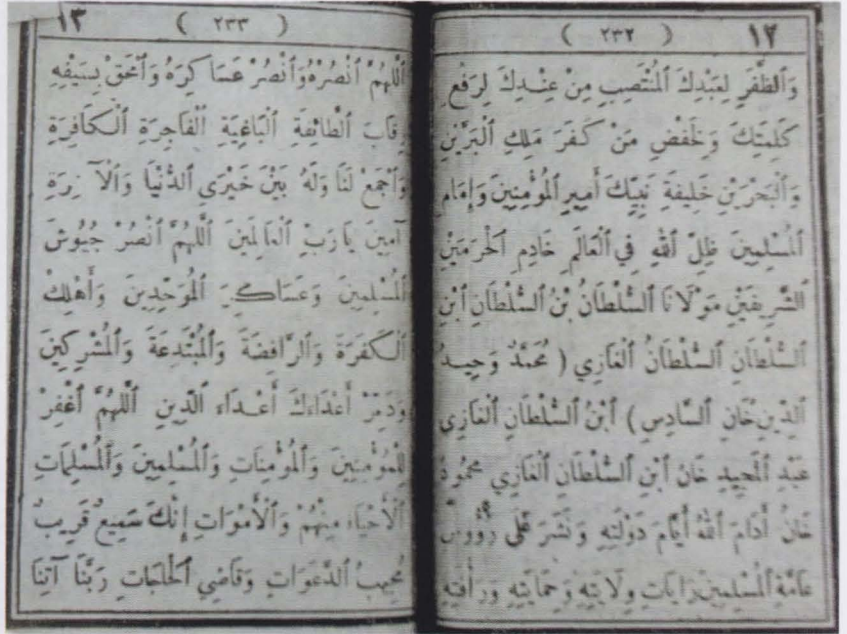 ١٢ ( ٢٣٢ )
وَٱلظَّفَرِ لِعَبْدِكَ ٱلْمُنْتَصِبِ مِنْ عِنْدِكَ لِرَفْعِ
كَلِمَتِكَ وَخَفْضِ مَنْ كَفَرَ مَلِكِ ٱلْبَرَّيْنِ
وَٱلْبَحْرَيْنِ خَلِيفَةِ نَبِيِّكَ أَمِيرِ ٱلْمُؤْمِنِينَ وَإِمَامِ
ٱلْمُسْلِمِينَ ظِلِّ ٱللهِ فِي ٱلْعَالَمِ خَادِمِ ٱلْحَرَمَيْنِ
ٱلشَّرِيفَيْنِ مَوْلَانَا ٱلسُّلْطَانُ بْنُ ٱلسُّلْطَانِ ٱبْنِ
ٱلسُّلْطَانِ ٱلسُّلْطَانُ ٱلْغَازِي ( مُحَمَّدٌ وَحِيدُ
ٱلدِّينِ خَانِ ٱلسَّادِسِ ) ٱبْنُ ٱلسُّلْطَانِ ٱلْغَازِي
عَبْدِ ٱلْمَجِيدِ خَانْ ٱبْنِ ٱلسُّلْطَانِ ٱلْغَازِي مَحْمُودْ
خَانْ أَدَامَ ٱللهُ أَيَّامَ دَوْلَتِهِ وَنَشَرَ عَلَى رُؤُوسِ
عَامَّةِ ٱلْمُسْلِمِينَ رَايَاتِ وِلَايَتِهِ وَحِمَايَتِهِ وَرَأْفَتِهِ
١٣ ( ٢٣٣ )
ٱللَّهُمَّ ٱنْصُرْهُ وَٱنْصُرْ عَسَاكِرَهُ وَٱمْحَقْ بِسَيْفِهِ
رِقَابَ ٱلطَّائِفَةِ ٱلْبَاغِيَةِ ٱلْفَاجِرَةِ ٱلْكَافِرَةِ
وَٱجْمَعْ لَنَا وَلَهُ بَيْنَ خَيْرَيِ ٱلدُّنْيَا وَٱلْآخِرَةِ
آمِينَ يَا رَبَّ ٱلْعَالَمِينَ ٱللَّهُمَّ ٱنْصُرْ جُيُوشَ
ٱلْمُسْلِمِينَ وَعَسَاكِرَ ٱلْمُوَحِّدِينَ وَأَهْلِكْ
ٱلْكَفَرَةَ وَٱلرَّافِضَةَ وَٱلْمُبْتَدِعَةَ وَٱلْمُشْرِكِينَ
وَدَمِّرْ أَعْدَاءَكَ أَعْدَاءَ ٱلدِّينِ ٱللَّهُمَّ ٱغْفِرْ
لِلْمُؤْمِنِينَ وَٱلْمُؤْمِنَاتِ وَٱلْمُسْلِمِينَ وَٱلْمُسْلِمَاتِ
ٱلْأَحْيَاءِ مِنْهُمْ وَٱلْأَمْوَاتِ إِنَّكَ سَمِيعٌ قَرِيبٌ
مُجِيبُ ٱلدَّعَوَاتِ وَقَاضِي ٱلْحَاجَاتِ رَبَّنَا آتِنَا